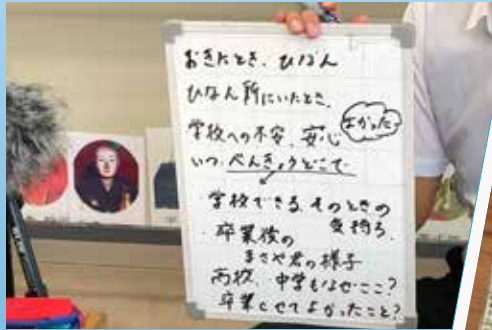 おきたとき、ひなん
ひなん所にいたとき、
学校への不安、安心 よかった
いつ、べんきょうどこで
学校できる、そのときの
気持ち、
・卒業後の
まさや君の様子
高校、中学もなぜここ?
卒業させてよかったこと?